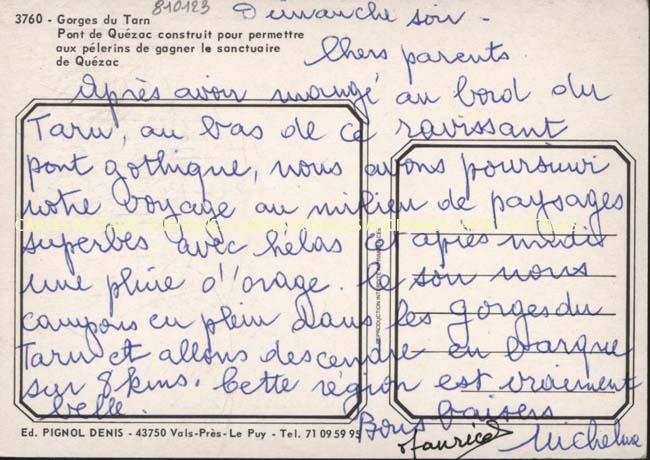 810123
3760 - Gorges du Tarn
Pont de Quézac construit pour permettre
aux pélerins de gagner le sanctuaire
de Quézac
Dimanche soir -
Chers parents
Après avoir mangé au bord du
Tarn, au bas de ce ravissant
pont gothique, nous avons poursuivi
notre voyage au milieu de paysages
superbes avec hélas cet après midi
une pluie d'orage. Ce soir nous
campons en plein dans les gorges du
Tarn et allons descendre en barque
sur 8 kms. Cette région est vraiment
belle.
Bons baisers
Maurice Micheline
Ed. PIGNOL DENIS - 43750 Vals-Près-Le Puy - Tel. 71 09 59 95